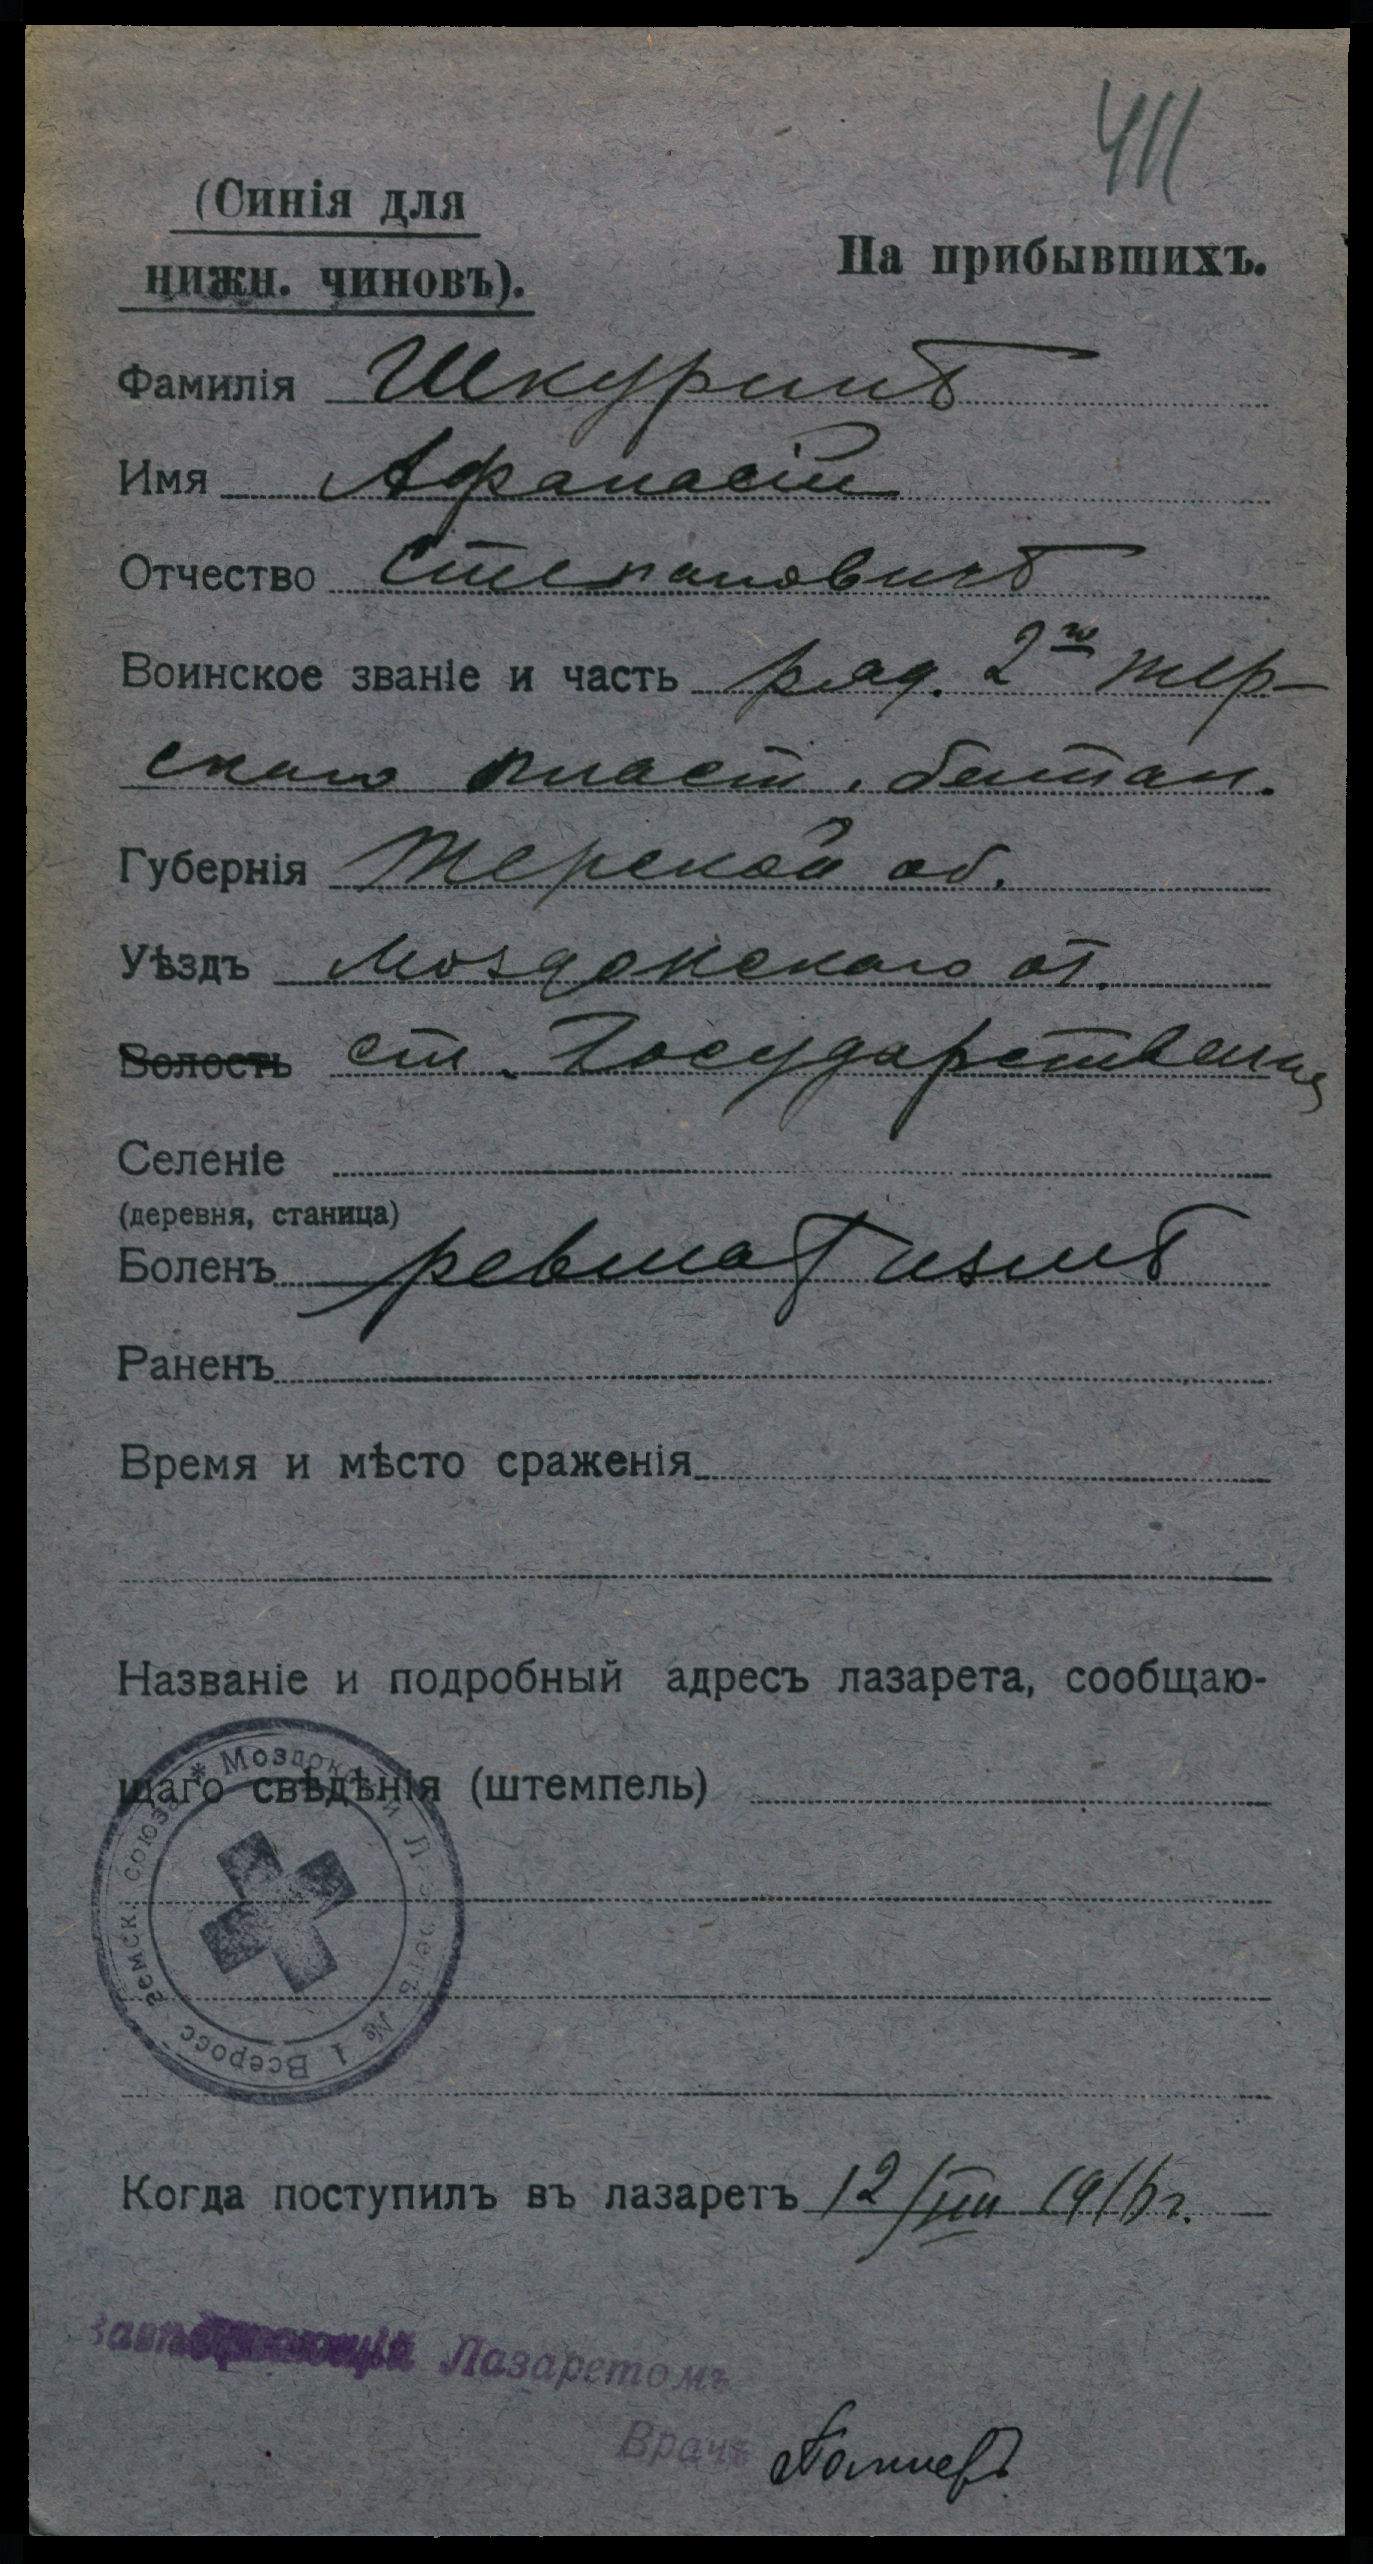 411
(Синія для
нижн. чиновъ).
На прибывшихъ.
Фамилія Шкуринъ
Имя Афанасій
Отчество Степановичъ
Воинское званіе и часть ряд. 2го Тер-
скаго пласт. баталı.
Губернія Терской об.
Уѣздъ Моздокскаго от.
Волость ст. Государственная
Селеніе
(деревня, станица)
Боленъ ревматизмъ
Раненъ
Время и мѣсто сраженія
Названіе и подробный адресъ лазарета, сообщаю-
щаго свѣдѣнія (штемпель)
* Моздокскій Лазаретъ № 1 Всеросс. Земск. Союза
Когда поступилъ въ лазаретъ 12/VIII 1916 г.
Завѣдывающій Лазаретомъ
Врачъ